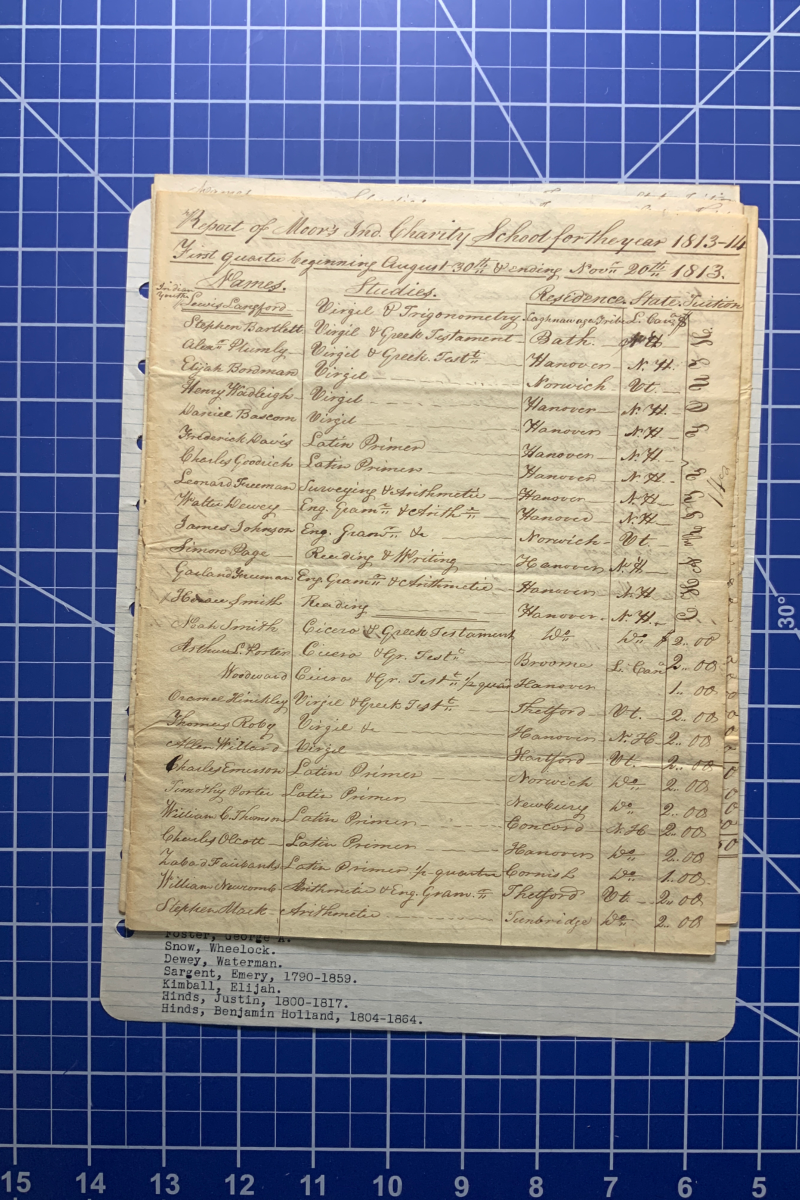 Report of Moor's Ind. Charity School for the year 1813-14
First quarter beginning August 30th & ending Novr 20th 1813.
Names. Studies. Residence. State. Tuition
Indian Youth
Lewis Langford Virgil & Trigonometry Caghnawaga Tribe L. Cana
Stephen Bartlett Virgil & Greek Testament Bath. N.H.
Alexr Plumly Virgil & Greek Testt Hanover N.H.
Elijah Bordman Virgil Norwich Vt.
Henry Wadleigh Virgil Hanover N.H.
Daniel Bascom Virgil Hanover N.H.
Frederick Davis Latin Primer Hanover N.H.
Charles Goodrich Latin Primer Hanover N.H.
Leonard Freeman Surveying & Arithmetic Hanover N.H.
Walter Dewey Eng. Gramr & Arith Hanover N.H.
James Johnson Eng. Gramr & Norwich Vt
Simeon Page Reading & Writing Hanover N.H.
Garland Freeman Eng Gramr & Arithmetic Hanover N.H.
Horace Smith Reading Hanover. N.H.
Noah Smith Cicero & Greek Testament Do Do $ 2..00
Arthur L. Porter Cicero & Gr. Testt Broome L. Cana 2..00
Woodward Cicero & Gr. Testt 1/2 quar Hanover 1..00
Oramel Hinckley Virgil & Greek Testt Thetford Vt. 2..00
Thomas Roby Virgil & Hanover N.H 2..00
Allen Willard Virgil Hartford Vt. 2..00
Charles Emerson Latin Primer Norwich Do 2..00
Timothy Porter Latin Primer Newbury Do 2..00
William C. Thomson Latin Primer Concord N.H 2..00
Charles Olcott Latin Primer Hanover Do 2..00
Zabad Fairbanks Latin Primer 1/2 quarter Cornish Do 1..00
William Newcomb Arithmetic & Eng. Gram. Thetford Vt. 2..00
Stephen Mack Arithmetic Tunbridge Do 2..00
Foster, George A.
Snow, Wheelock.
Dewey, Waterman.
Sargent, Emery, 1790-1859.
Kimball, Elijah.
Hinds, Justin, 1800-1817.
Hinds, Benjamin Holland, 1804-1864.
30°
15 14 13 12 11 10 9 8 7 6 5